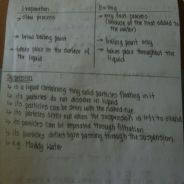 Evaporation
Boiling
→ slow process
→ very fast process
(because of the heat added to
the water)
→ below boiling point
→ boiling point only
→ takes place on the surface of
the liquid
→ takes place throughout the
liquid
Suspension
→ is a liquid containing tiny solid particles floating in it
→ its particles do not dissolve in liquid
→ its particles can be seen with the naked eye
→ its particles settle out when the suspension is left to stand
→ its particles can be separated through filtration
→ its particles light passing through the suspension
→ e.g. Muddy Water